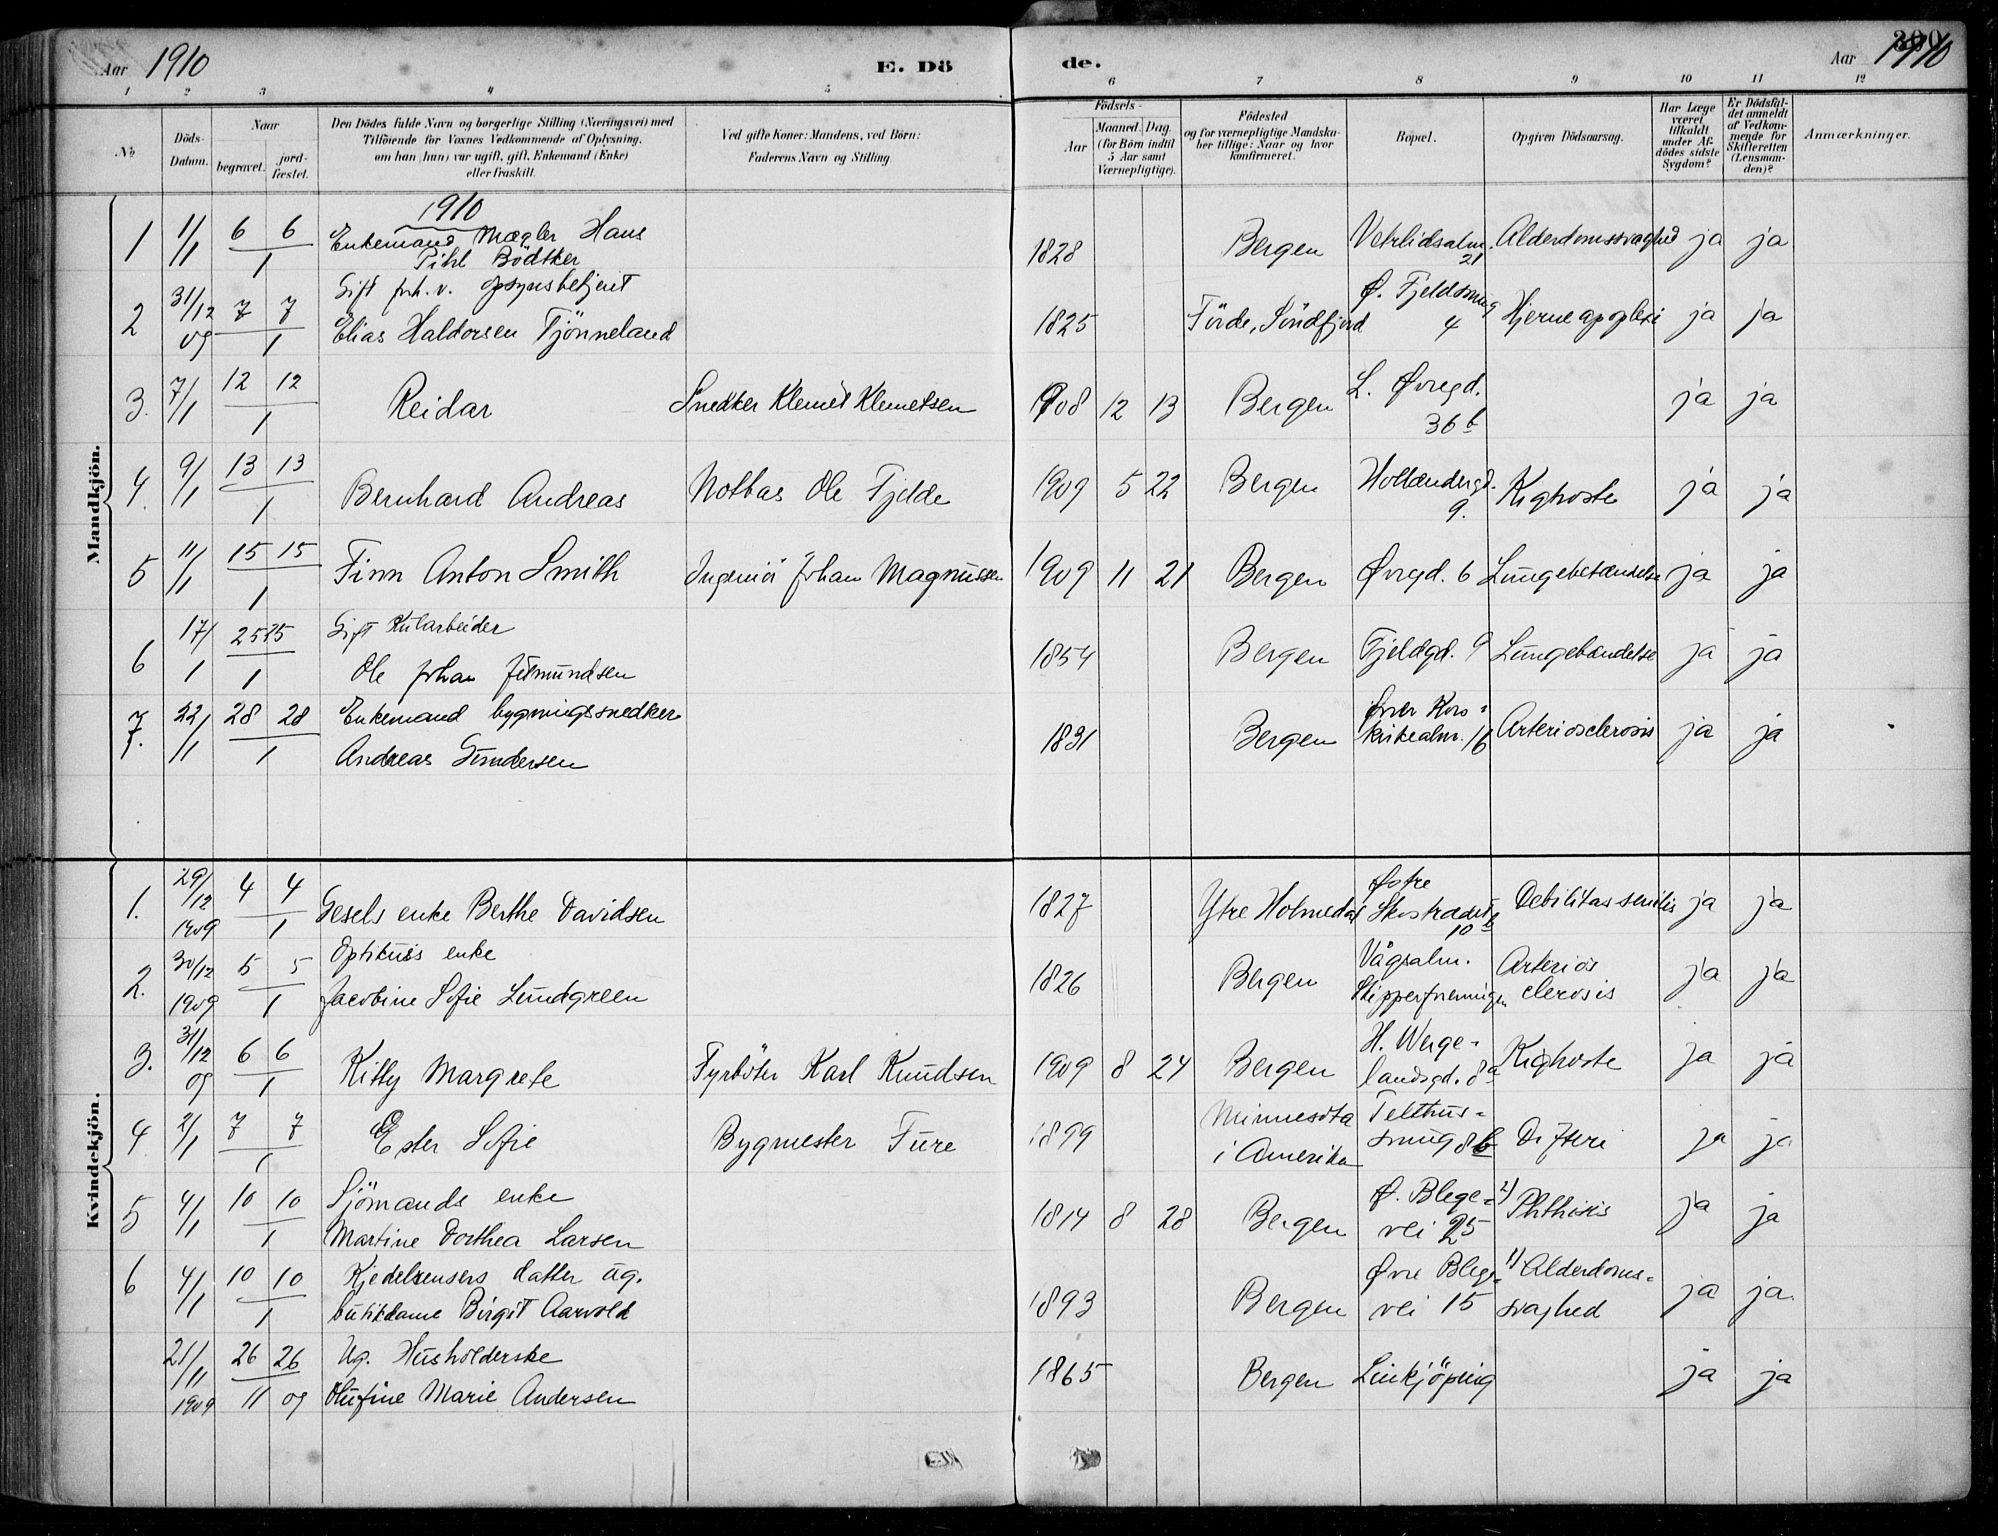 Aar 1910 E. Dö de. Aar 1910 300
1 2 3 4 5 6 7 8 9 10 11 12
No
Döds-Datum.
Naar begravet. jordfæstet.
Den Dödes fulde Navn og borgerlige Stilling (Næringsvei) med
Tilföiende for Voxnes Vedkommende af Oplysning,
om han (hun) var ugift, gift, Enkemand (Enke)
eller fraskilt.
Ved gifte Koner: Mandens, ved Börn:
Faderens Navn og Stilling.
Födsels-
Aar Maaned. Dag.
(for Börn indtil
5 Aar samt
Værnepligtige).
Födested
og for værnepligtige Mandska-
ber tillige: Naar og hvor
konfirmeret.
Bopæl.
Opgiven Dödsaarsag.
Har Læge
været
tilkaldt
under Af-
dödes sidste
Sygdom?
Er Dödsfal-
det anmeldt
af Vedkom-
mende for
Skifteretten
(Lensman-
den)?
Anmærkninger.
Mandkjön.
1910
1 1/1 6 6 Enkemand Mægler Hans 1828 Bergen Vetrlidsalm. Alderdomssvaghed ja ja
1 Pihl Bödtker 21
Gift fhv. opsynsbetjent Ø. Fjeldsmug
2 31/12 7 7 Elias Haldorsen Tjönneland 1825 Förde, Söndfjord 4 Hjerneapoplexi ja ja
09 1
3. 7/1 12 12 Reidar Snedker Klemet Klemetsen 1908 12 13 Bergen L. Øvregd. ja ja
1 36 b
4. 9/1 13 13 Bernhard Andreas Notbas Ole Fjelde 1909 5 22 Bergen Hollændergd. Kighoste ja ja
1 9.
5 11/1 15 15 Finn Anton Smith Ingeniör Johan Magnussen 1909 11 21 Bergen Øvregd. 6 Lungebetændelse ja ja
1
6 17/ 25 25 Gift Kularbeider 1854 Bergen Fjeldgd. 9 Lungebændelse ja ja
1 1 Ole Johan
7. 22/1 28 28 Enkemand bygningssnedker 1831 Bergen Øvre Kors- Arteriosclerosis ja ja
1 Andreas Gundersen kirkealm. 16
Kvindekjön.
1. 29/12 4 4 Gesels enke Berthe Davidsen 1827 Ytre Holmedal Østre Debilitas senilis ja ja
1909 1 Skostrædet 10 b
2. 30/12 5 5 Optikuis enke 1826 Bergen Vågsalm. Arterios ja ja
1909 1 Jacobine Sofie Lundgreen Skipperforeningen clerosis
3. 31/12 6 6 Kitty Margrete Fyrböter Karl Knudsen 1909 8 24 Bergen H. Werge- Kighoste ja ja
09 1 landsgd. 8 a
4 2/1 7 7 Ester Sofie Bygmester Fure 1899 Minnesota Telthus- Difteri ja ja
1 i Amerika smug 8 b
5 4/1 10 10 Sjömands enke 1814 8 28 Bergen Ø. Blege- 2) Phthisis ja ja
1 Martine Dorthea Larsen vei 25
6 4/1 10 10 Kjedelrensers datter ug. 1893 Bergen Øvre Blege- 1) Alderdoms- ja ja
1 butikdame Birgit Aarvold vei 15 svaghed
21/11 26 26 Ug. Husholderske 1865 Bergen Linkjöping ja ja
1909 11 09 Olufine Marie Andersen